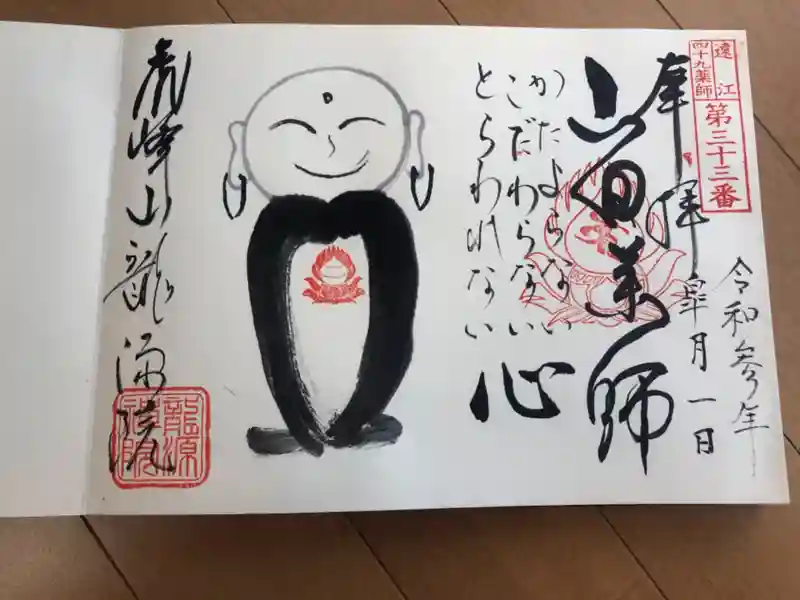 遠江
四十九薬師
第三十三番
奉拝
令和参年
皐月一日
薬師
かたよらない
こだわらない
とらわれない
心
青峰山龍源院
龍源
禅院